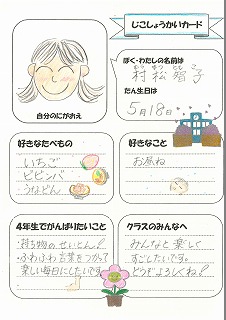 じこしょうかいカード
自分のにがおえ
ぼく・わたしの名前は
むら まつ とも こ
村松智子
たん生日は
5月18日
好きなたべもの
いちご
ビビンバ
うなどん
好きなこと
お昼ね
4年生でがんばりたいこと
持ち物のせいとん!
ふわふわ言葉をつかって
楽しい毎日にしたいです。
クラスのみんなへ
みんなと楽しく
すごしたいです。
どうぞよろしくね!